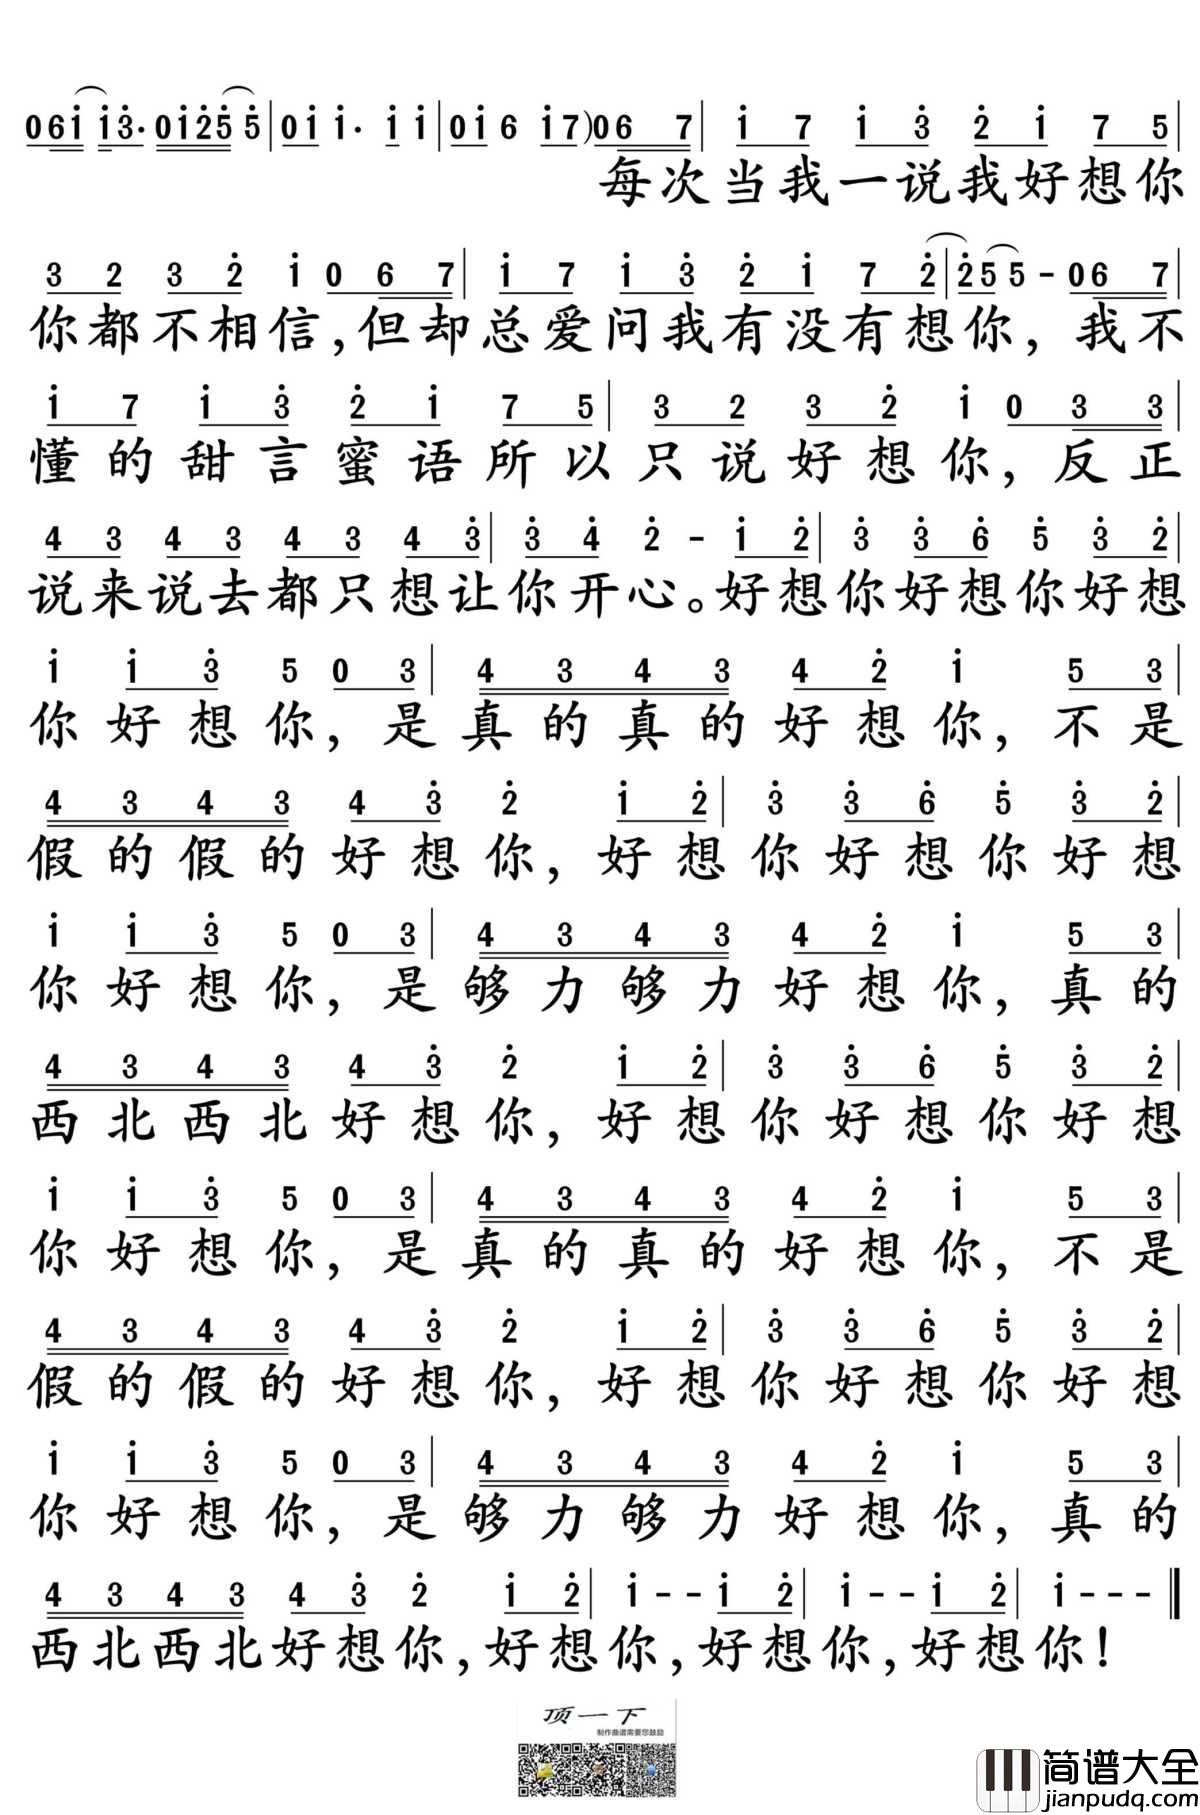 06i i3· 0i25 5 | 0i i· i i | 0i 6 i7) 06 7 | i 7 i 3 2 i 7 5 |
每次当我一说我好想你
3 2 3 2 i 0 6 7 | i 7 i 3 2 i 7 2 | 25 5 - 06 7 |
你都不相信,但却总爱问我有没有想你,我不
i 7 i 3 2 i 7 5 | 3 2 3 2 i 0 3 3 |
懂的甜言蜜语所以只说好想你,反正
4 3 4 3 4 3 4 3 | 3 4 2 - i 2 | 3 3 6 5 3 2 |
说来说去都只想让你开心。好想你好想你好想
i i 3 5 0 3 | 4 3 4 3 4 2 i 5 3 |
你好想你,是真的真的好想你,不是
4 3 4 3 4 3 2 i 2 | 3 3 6 5 3 2 |
假的假的好想你,好想你好想你好想
i i 3 5 0 3 | 4 3 4 3 4 2 i 5 3 |
你好想你,是够力够力好想你,真的
4 3 4 3 4 3 2 i 2 | 3 3 6 5 3 2 |
西北西北好想你,好想你好想你好想
i i 3 5 0 3 | 4 3 4 3 4 2 i 5 3 |
你好想你,是真的真的好想你,不是
4 3 4 3 4 3 2 i 2 | 3 3 6 5 3 2 |
假的假的好想你,好想你好想你好想
i i 3 5 0 3 | 4 3 4 3 4 2 i 5 3 |
你好想你,是够力够力好想你,真的
4 3 4 3 4 3 2 i 2 | i - - i 2 | i - - i 2 | i - - - ‖
西北西北好想你,好想你,好想你,好想你!
顶一下
制作曲谱需要您鼓励
简谱大全
jianpudq.com